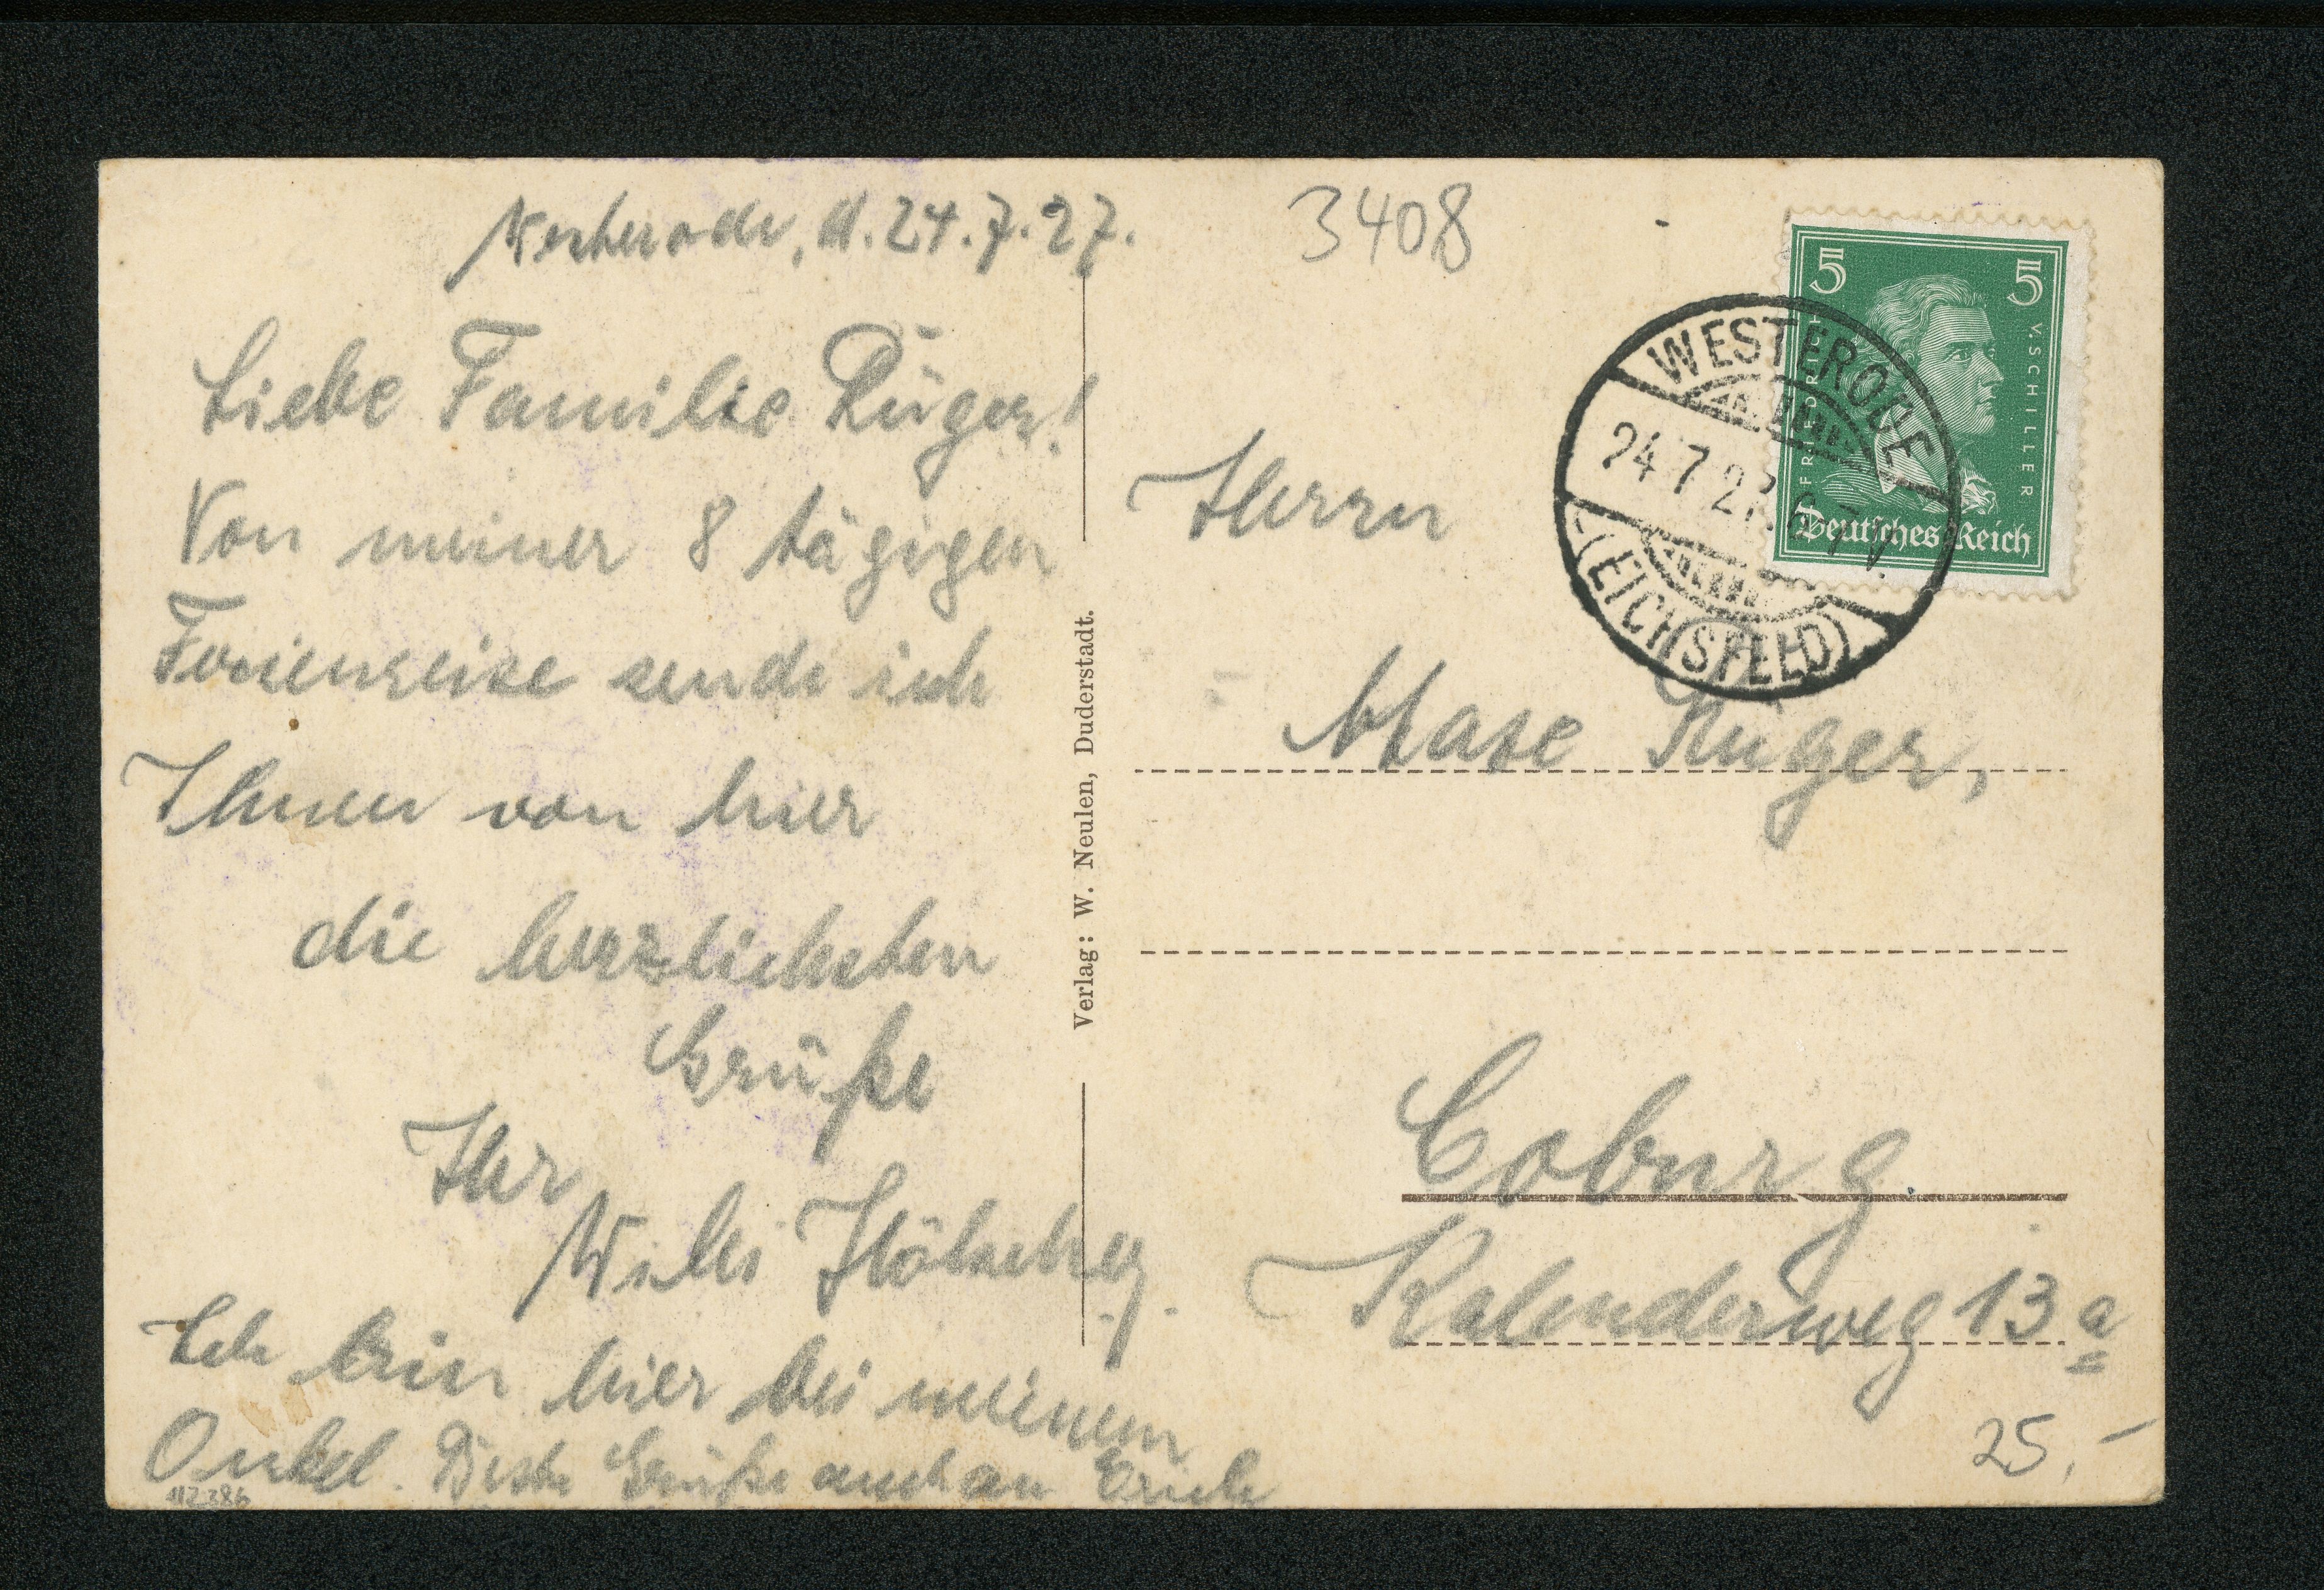 Westerode, d. 24.7.27.
Liebe Familie Rüger!
Von meiner 8 tägigen
Ferienreise sende ich
Ihnen von hier
die herzlichsten
Grüße
Ihr
Willi
Ich bin hier bei meinem
Onkel. Beste Grüße auch an Erich
112386
Verlag: W. Neulen, Duderstadt.
3408
5 5
FRIEDRICH V. SCHILLER
Deutsches Reich
WESTERODE
24.7.27. 6-7 V.
(EICHSFELD)
Herrn
Rüger,
Coburg.
Kalenderweg 13a
25,-